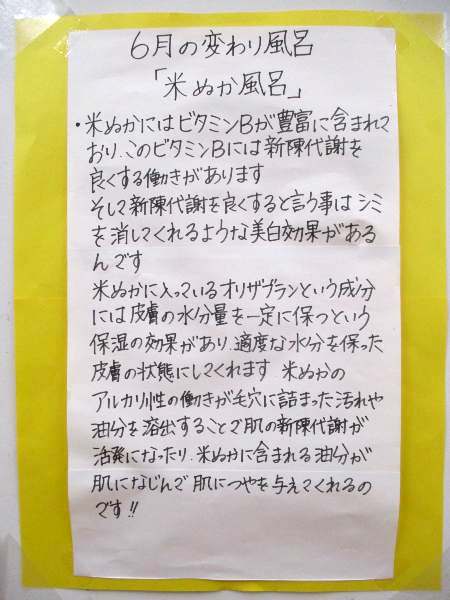 6月の変わり風呂
「米ぬか風呂」
・米ぬかにはビタミンBが豊富に含まれて
おり、このビタミンBには新陳代謝を
良くする働きがあります
そして新陳代謝を良くすると言う事は シミ
を消してくれるような美白効果がある
んです
米ぬかに入っているオリザブランという成分
には皮膚の水分量を一定に保つという
保湿の効果があり、適度な水分を保った
皮膚の状態にしてくれます 米ぬかの
アルカリ性の働きが毛穴に詰まった汚れや
油分を溶出することで肌の新陳代謝が
活発になったり、米ぬかに含まれる油分が
肌になじんで 肌につやを与えてくれるの
です!!